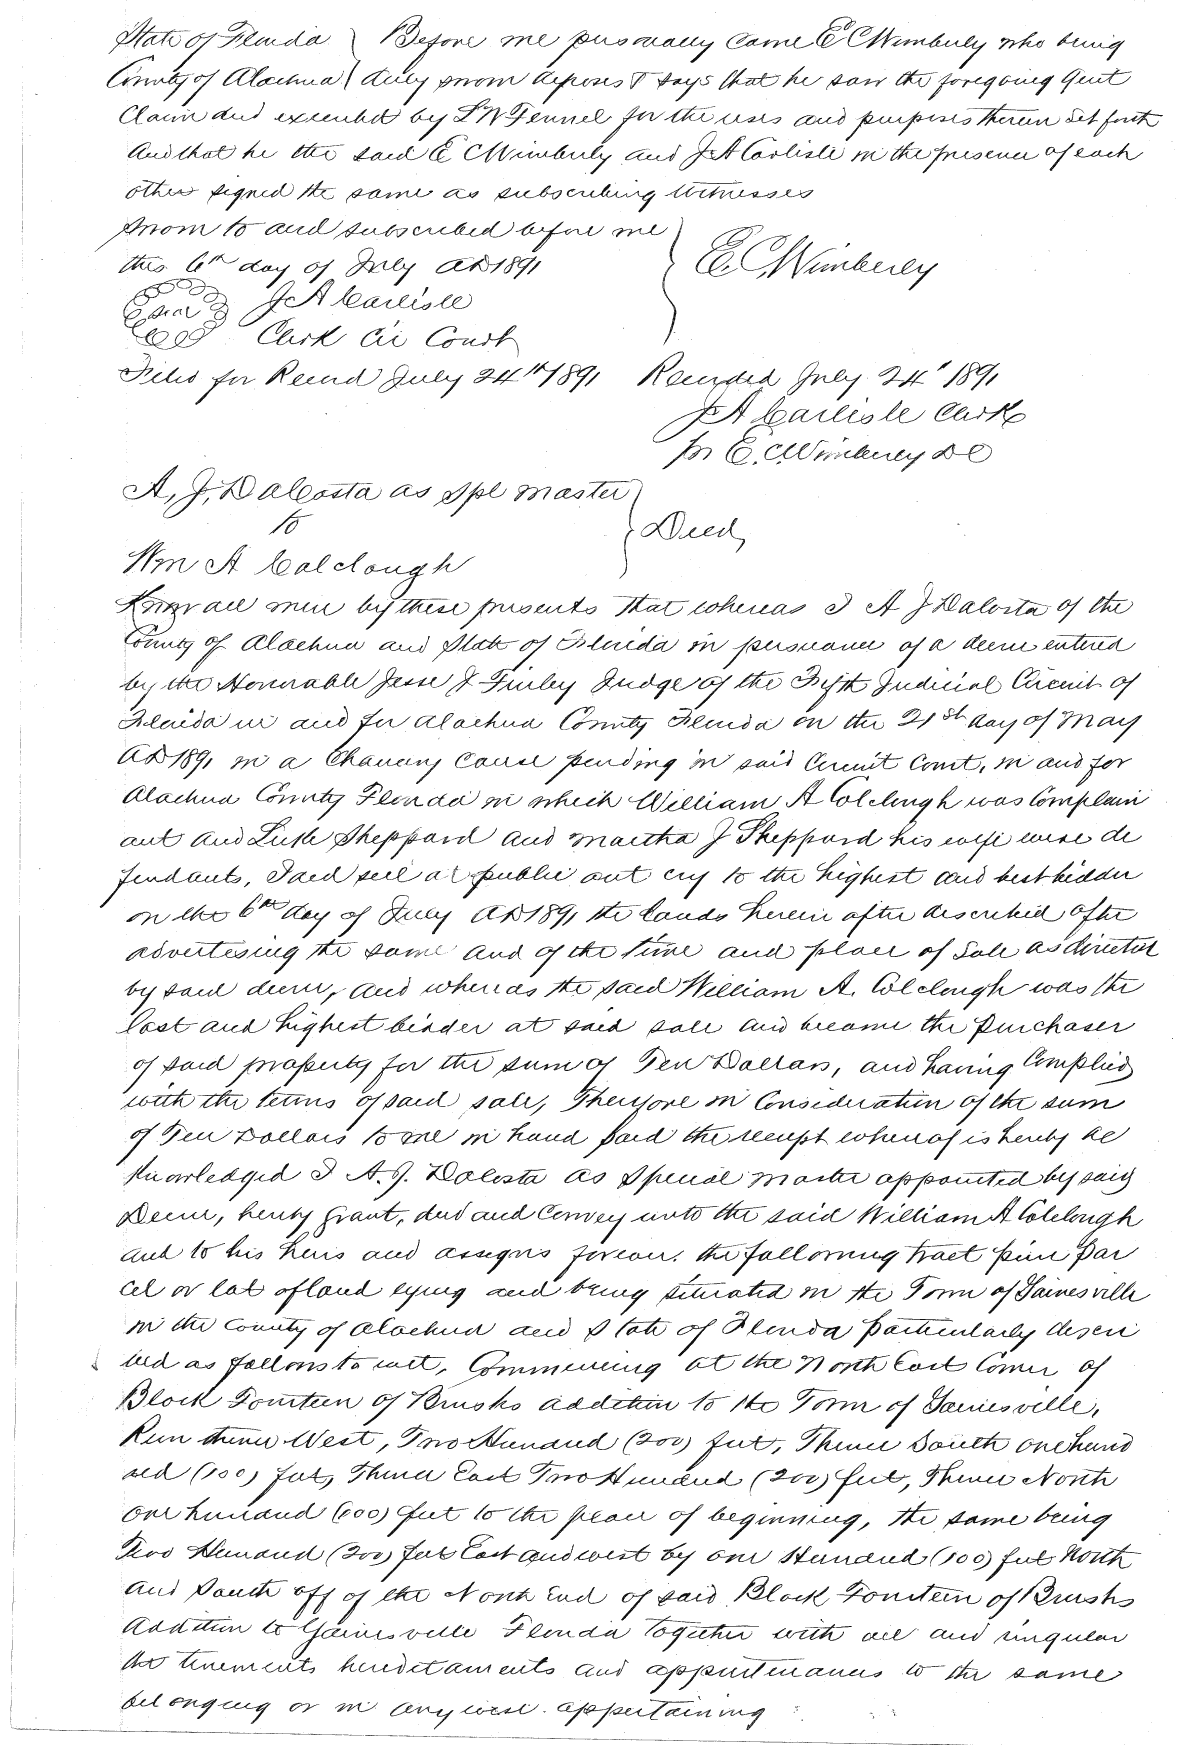 State of Florida } Before me personally came E C Wimberly who being
County of Alachua } duly sworn deposes & says that he saw the foregoing Quit
Claim deed executed by L W Fennel for the uses and purposes therein set forth
And that he the said E C Wimberly and J A Carlisle in the presence of each
other signed the same as subscribing witnesses
Sworn to and subscribed before me
this 6th day of July AD 1891 } E. C. Wimberly
Seal J A Carlisle
Clerk Cir Court
Filed for Record July 24th 1891 Recorded July 24" 1891
J A Carlisle Clerk
pr E. C. Wimberly DC
A, J, DaCosta as Spl Master
to } Deed,
Wm A Colclough
Know all men by these presents That whereas I A J DaCosta of the
County of Alachua and State of Florida in pursuance of a decree entered
by the Honorable Jesse J Finley Judge of the Fifth Judicial Circuit of
Florida in and for Alachua County Florida on the 21st day of May
AD 1891 in a Chancery Cause pending in said Circuit Court, in and for
Alachua County Florida in which William A Colclough was Complain
ant and Luke Sheppard and Martha J Sheppard his wife were de
fendants, I did sell at public out cry to the highest and best bidder
on the 6th day of July AD 1891 the lands herein after described after
advertising the same and of the time and place of Sale as directed
by said decree, and whereas the said William A. Colclough was the
last and highest bidder at said sale and became the Purchaser
of said property for the sum of Ten Dollars, and having Complied
with the terms of said sale, Therefore in Consideration of the sum
of Ten Dollars to me in hand paid the receipt whereof is hereby ac
knowledged I A. J. DaCosta as Special Master appointed by said
Decree, hereby grant, deed and Convey unto the said William A Colclough
and to his heirs and assigns forever. the following tract piece Par
cel or lot of land lying and being situated in the Town of Gainesville
in the County of Alachua and State of Florida particularly descri
bed as follows to wit, Commencing at the North East Corner of
Block Fourteen of Brushs addition to the Town of Gainesville,
Run thence West, Two Hundred (200) feet, Thence South one hund
red (100) feet, Thence East Two Hundred (200) feet, Thence North
one hundred (100) feet to the place of beginning, the same being
Two Hundred (200) feet East and west by one Hundred (100) feet North
and South off of the North End of said Block Fourteen of Brushs
Addition to Gainesville Florida Together with all and singular
the tenements hereditaments and appurtenances to the same
belonging or in anywise appertaining